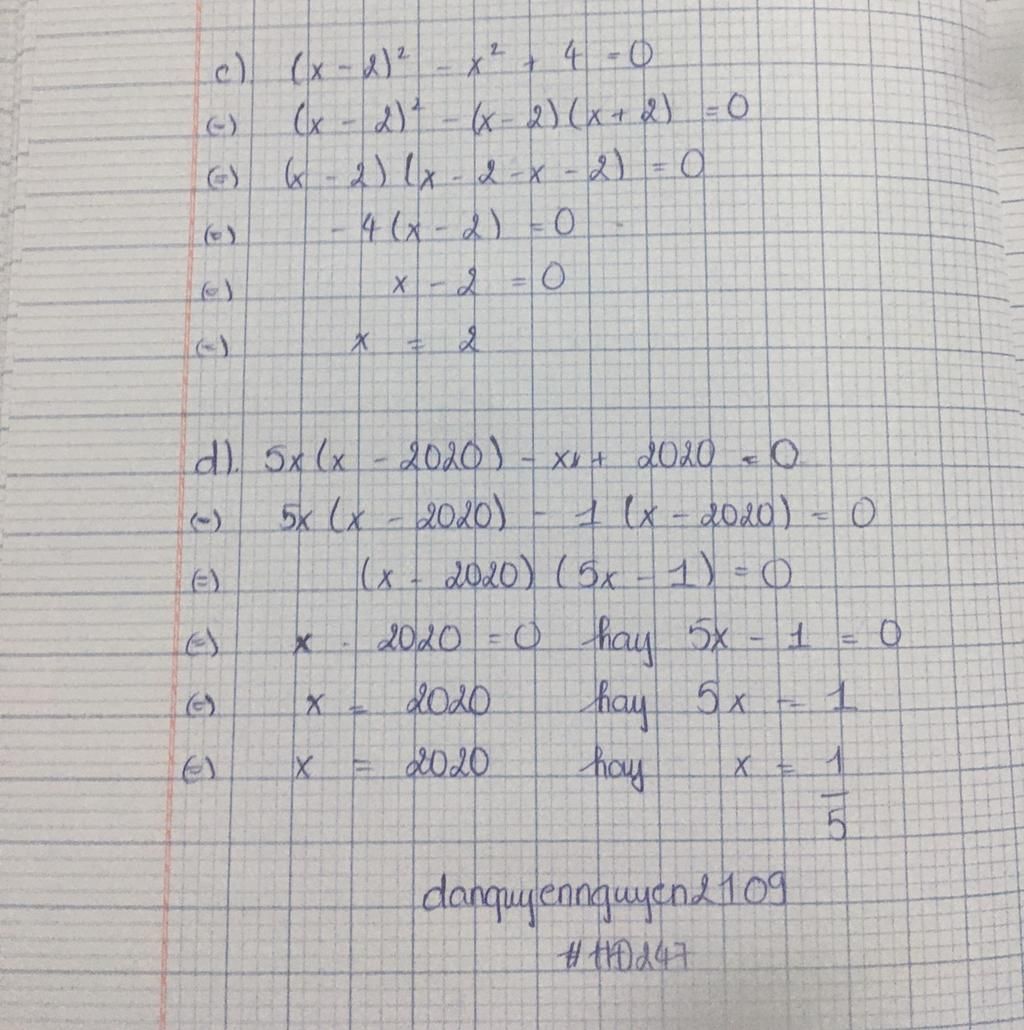 c). (x - 2)² - x² + 4 = 0
(=) (x - 2)² - (x - 2)(x + 2) = 0
(=) (x - 2)(x - 2 - x - 2) = 0
(=) - 4(x - 2) = 0
(=) x - 2 = 0
(=) x = 2
d). 5x(x - 2020) - x + 2020 = 0
(=) 5x(x - 2020) - 1 (x - 2020) = 0
(=) (x - 2020)(5x - 1) = 0
(=) x - 2020 = 0 hay 5x - 1 = 0
(=) x = 2020 hay 5x = 1
(=) x = 2020 hay x = 1/5
danquyennguyen2109
#HD247